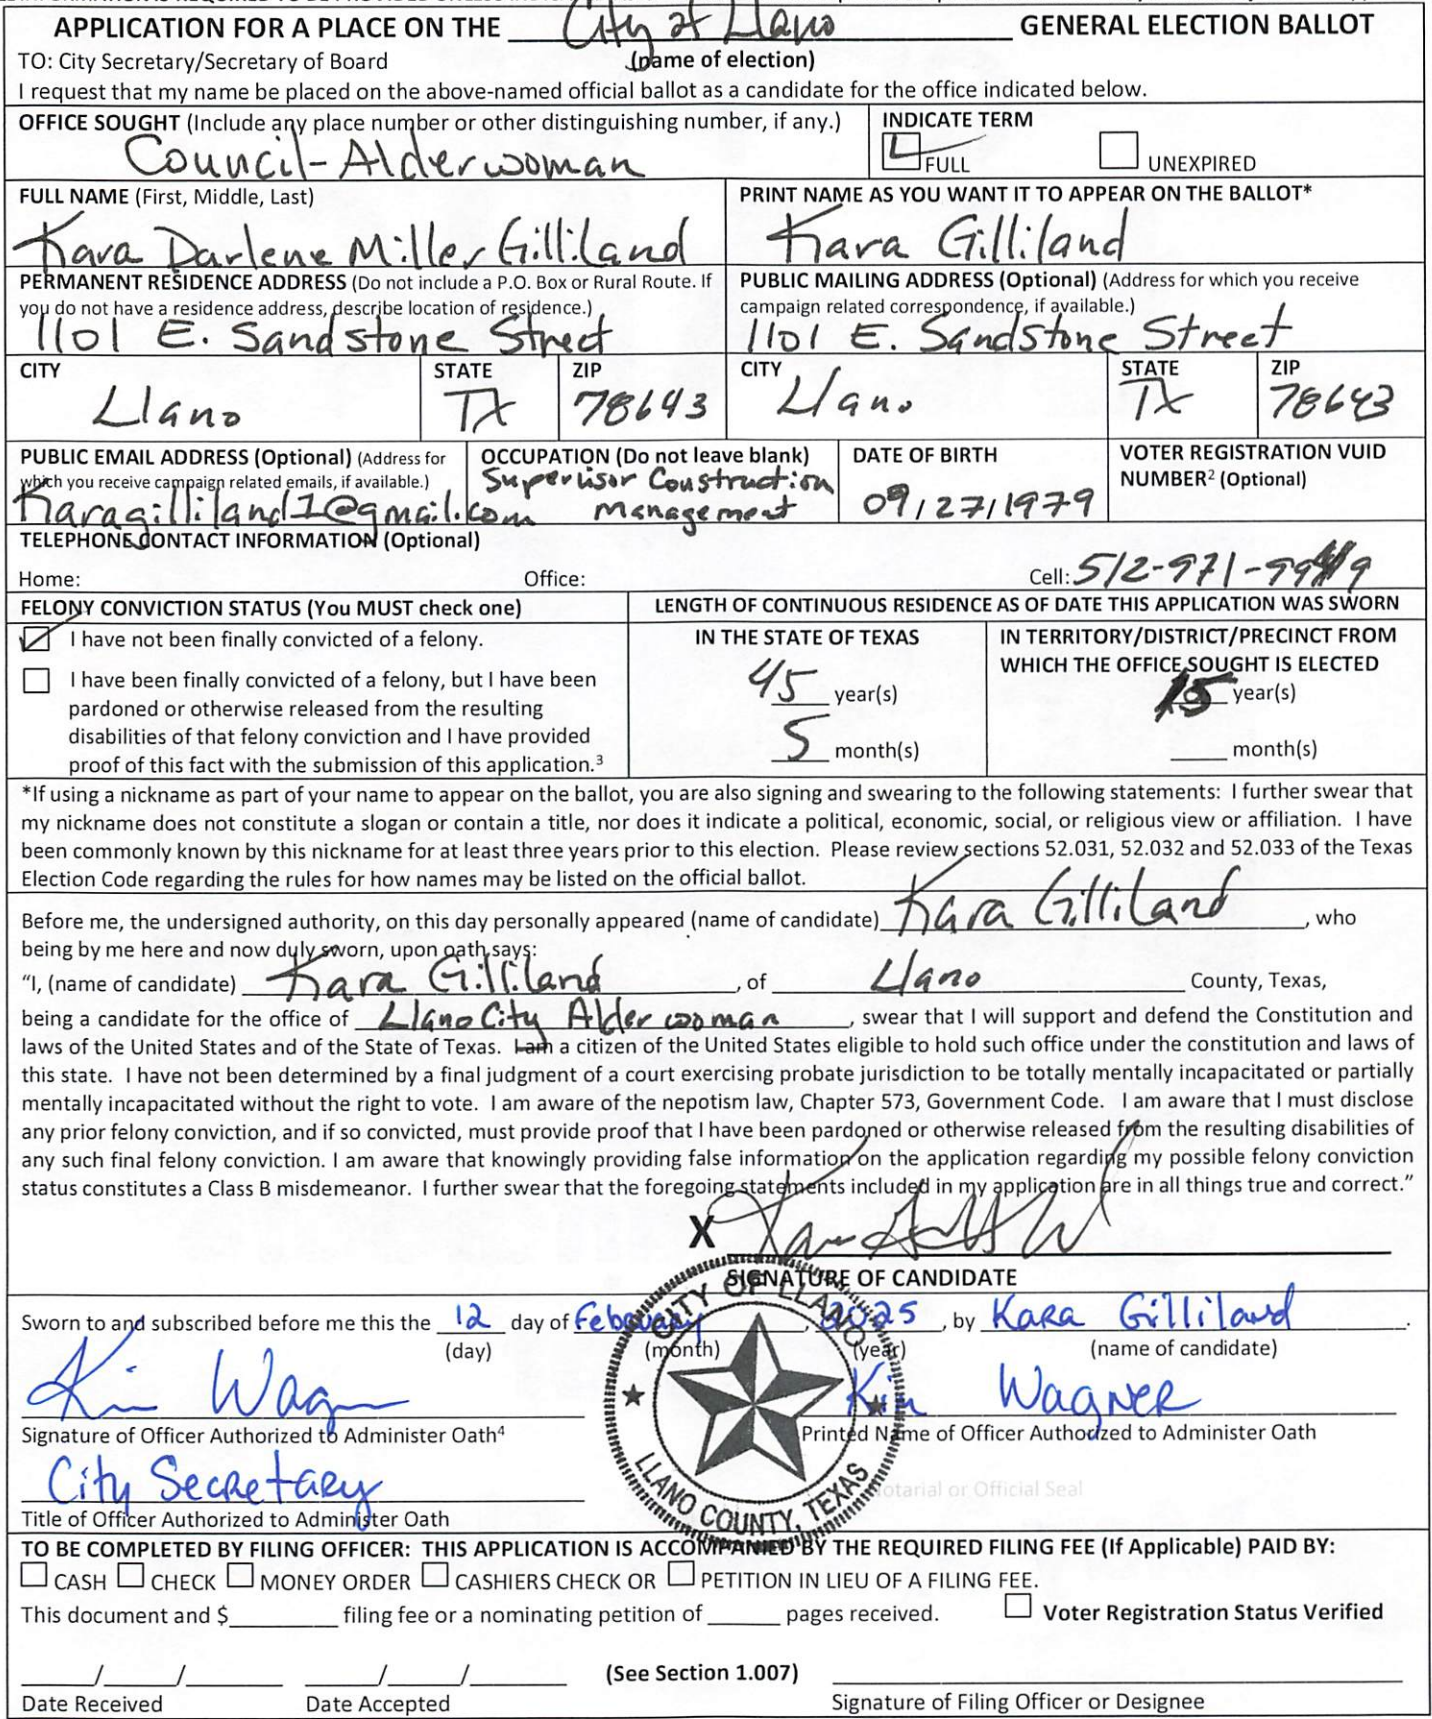 APPLICATION FOR A PLACE ON THE City of Llano GENERAL ELECTION BALLOT
TO: City Secretary/Secretary of Board (name of election)
I request that my name be placed on the above-named official ballot as a candidate for the office indicated below.
OFFICE SOUGHT (Include any place number or other distinguishing number, if any.)
Council-Alderwoman
INDICATE TERM
FULL UNEXPIRED
FULL NAME (First, Middle, Last)
Kara Darlene Miller Gilliland
PRINT NAME AS YOU WANT IT TO APPEAR ON THE BALLOT*
Kara Gilliland
PERMANENT RESIDENCE ADDRESS (Do not include a P.O. Box or Rural Route. If
you do not have a residence address, describe location of residence.)
1101 E. Sandstone Street
PUBLIC MAILING ADDRESS (Optional) (Address for which you receive
campaign related correspondence, if available.)
1101 E. Sandstone Street
CITY STATE ZIP CITY STATE ZIP
Llano TX 78643 Llano TX 78643
PUBLIC EMAIL ADDRESS (Optional) (Address for
which you receive campaign related emails, if available.)
Karagilliland1@gmail.com
OCCUPATION (Do not leave blank)
Supervisor Construction
Management
DATE OF BIRTH
09/27/1979
VOTER REGISTRATION VUID
NUMBER² (Optional)
TELEPHONE CONTACT INFORMATION (Optional)
Home: Office: Cell: 512-971-
FELONY CONVICTION STATUS (You MUST check one)
I have not been finally convicted of a felony.
I have been finally convicted of a felony, but I have been
pardoned or otherwise released from the resulting
disabilities of that felony conviction and I have provided
proof of this fact with the submission of this application.³
LENGTH OF CONTINUOUS RESIDENCE AS OF DATE THIS APPLICATION WAS SWORN
IN THE STATE OF TEXAS
45 year(s)
5 month(s)
IN TERRITORY/DISTRICT/PRECINCT FROM
WHICH THE OFFICE SOUGHT IS ELECTED
15 year(s)
month(s)
*If using a nickname as part of your name to appear on the ballot, you are also signing and swearing to the following statements: I further swear that
my nickname does not constitute a slogan or contain a title, nor does it indicate a political, economic, social, or religious view or affiliation. I have
been commonly known by this nickname for at least three years prior to this election. Please review sections 52.031, 52.032 and 52.033 of the Texas
Election Code regarding the rules for how names may be listed on the official ballot.
Before me, the undersigned authority, on this day personally appeared (name of candidate) Kara Gilliland, who
being by me here and now duly sworn, upon oath says:
"I, (name of candidate) Kara Gilliland, of Llano County, Texas,
being a candidate for the office of Llano City Alderwoman, swear that I will support and defend the Constitution and
laws of the United States and of the State of Texas. I am a citizen of the United States eligible to hold such office under the constitution and laws of
this state. I have not been determined by a final judgment of a court exercising probate jurisdiction to be totally mentally incapacitated or partially
mentally incapacitated without the right to vote. I am aware of the nepotism law, Chapter 573, Government Code. I am aware that I must disclose
any prior felony conviction, and if so convicted, must provide proof that I have been pardoned or otherwise released from the resulting disabilities of
any such final felony conviction. I am aware that knowingly providing false information on the application regarding my possible felony conviction
status constitutes a Class B misdemeanor. I further swear that the foregoing statements included in my application are in all things true and correct."
X
SIGNATURE OF CANDIDATE
Sworn to and subscribed before me this the 12 day of February, 2025, by Kara Gilliland.
(day) (month) (year) (name of candidate)
CITY OF LLANO
LLANO COUNTY, TEXAS
Kim Wagner
Signature of Officer Authorized to Administer Oath⁴
Kim Wagner
Printed Name of Officer Authorized to Administer Oath
City Secretary
Notarial or Official Seal
Title of Officer Authorized to Administer Oath
TO BE COMPLETED BY FILING OFFICER: THIS APPLICATION IS ACCOMPANIED BY THE REQUIRED FILING FEE (If Applicable) PAID BY:
CASH CHECK MONEY ORDER CASHIERS CHECK OR PETITION IN LIEU OF A FILING FEE.
This document and $ filing fee or a nominating petition of pages received. Voter Registration Status Verified
/ / / / (See Section 1.007)
Date Received Date Accepted Signature of Filing Officer or Designee